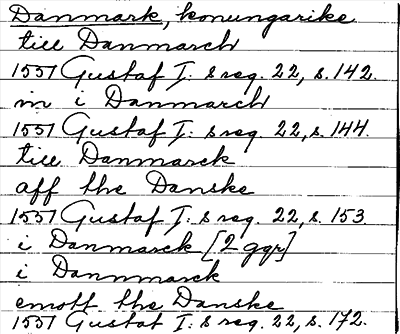 Danmark, konungarike
till Danmarch
1551 Gustaf I: s reg. 22, s. 142.
in i Danmarch
1551 Gustaf I: s reg. 22, s. 144.
till Danmarck
aff the Danske
1551 Gustaf I: s reg. 22, s. 153
i Danmarck [2 ggr]
i Danmarck
emott the Danske
1551 Gustaf I: s reg. 22, s. 172.